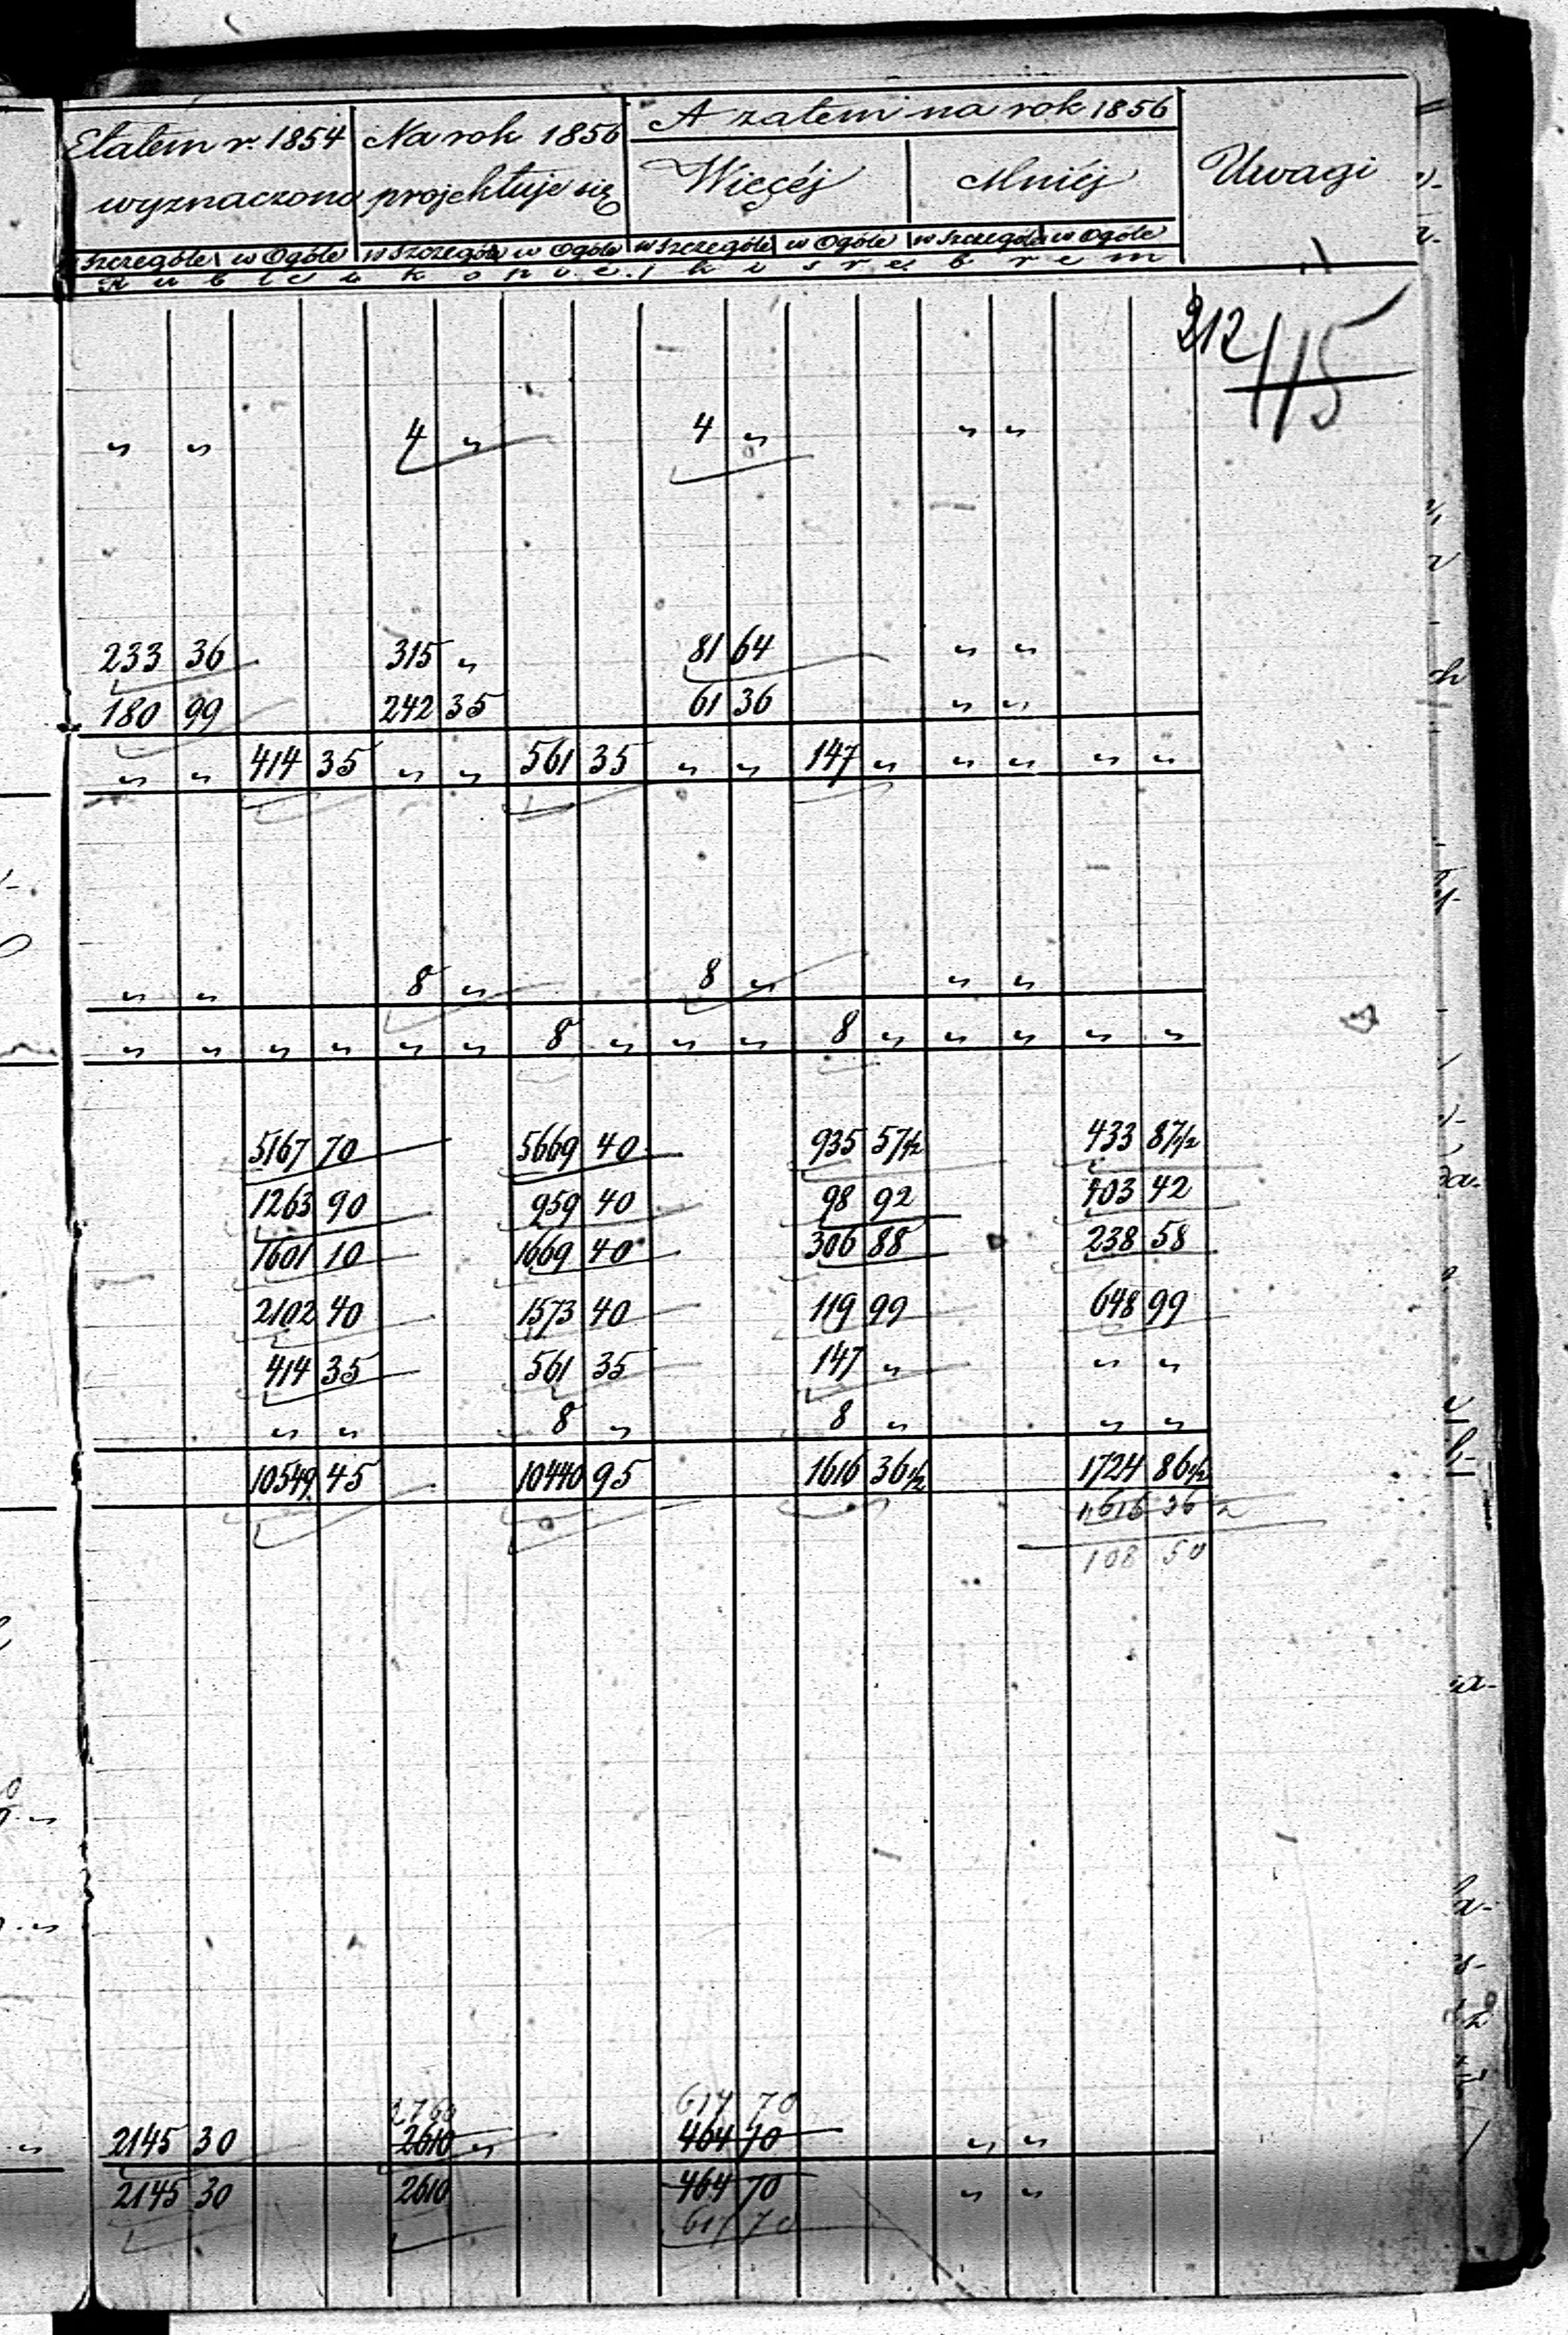 Etatem r. 1854 Na rok 1856 A zatem na rok 1856
wyznaczono projektuje się Więcéj Mniéj Uwagi
w szczególe w Ogóle w szczególe w Ogóle w szczególe w Ogóle w szczególe w Ogóle
Ruble i kopiejki srebrem
212 115
" " 4 " 4 " " "
233 36 315 " 81 64 " "
180 99 242 35 61 36 " "
" " 414 35 " " 561 35 " " 147 " " " " "
" " 8 " 8 " " "
" " " " " " 8 " " " 8 " " " " "
5167 70 5669 40 935 57 1/2 433 87 1/2
1263 90 959 40 98 92 403 42
1601 10 1669 40 306 88 238 58
2102 40 1573 40 119 99 648 99
414 35 561 35 147 " " "
" " 8 " 8 " " "
10549 45 10440 95 1616 36 1/2 1724 86 1/2
1616 36 1/2
108 50
2760 614 70
2145 30 2610 " 464 70 " "
2145 30 2610 464 70 " "
614 70